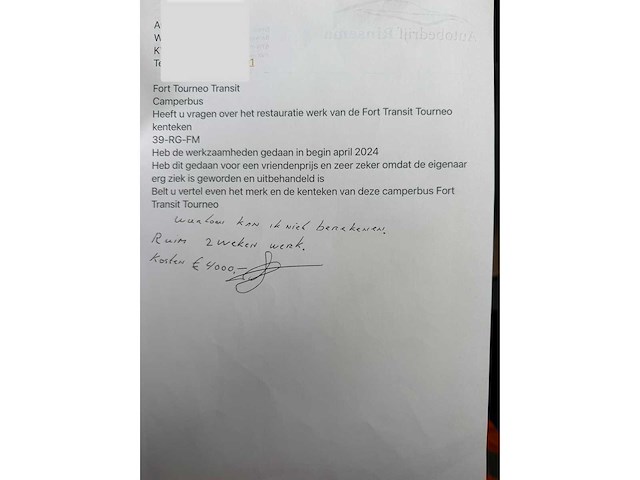 A
W
K
Te 1
Fort Tourneo Transit
Camperbus
Heeft u vragen over het restauratie werk van de Fort Transit Tourneo
kenteken
39-RG-FM
Heb de werkzaamheden gedaan in begin april 2024
Heb dit gedaan voor een vriendenprijs en zeer zeker omdat de eigenaar
erg ziek is geworden en uitbehandeld is
Belt u vertel even het merk en de kenteken van deze camperbus Fort
Transit Tourneo
kan ik niet berekenen.
Ruim 2 weken werk.
Kosten € 4000,-